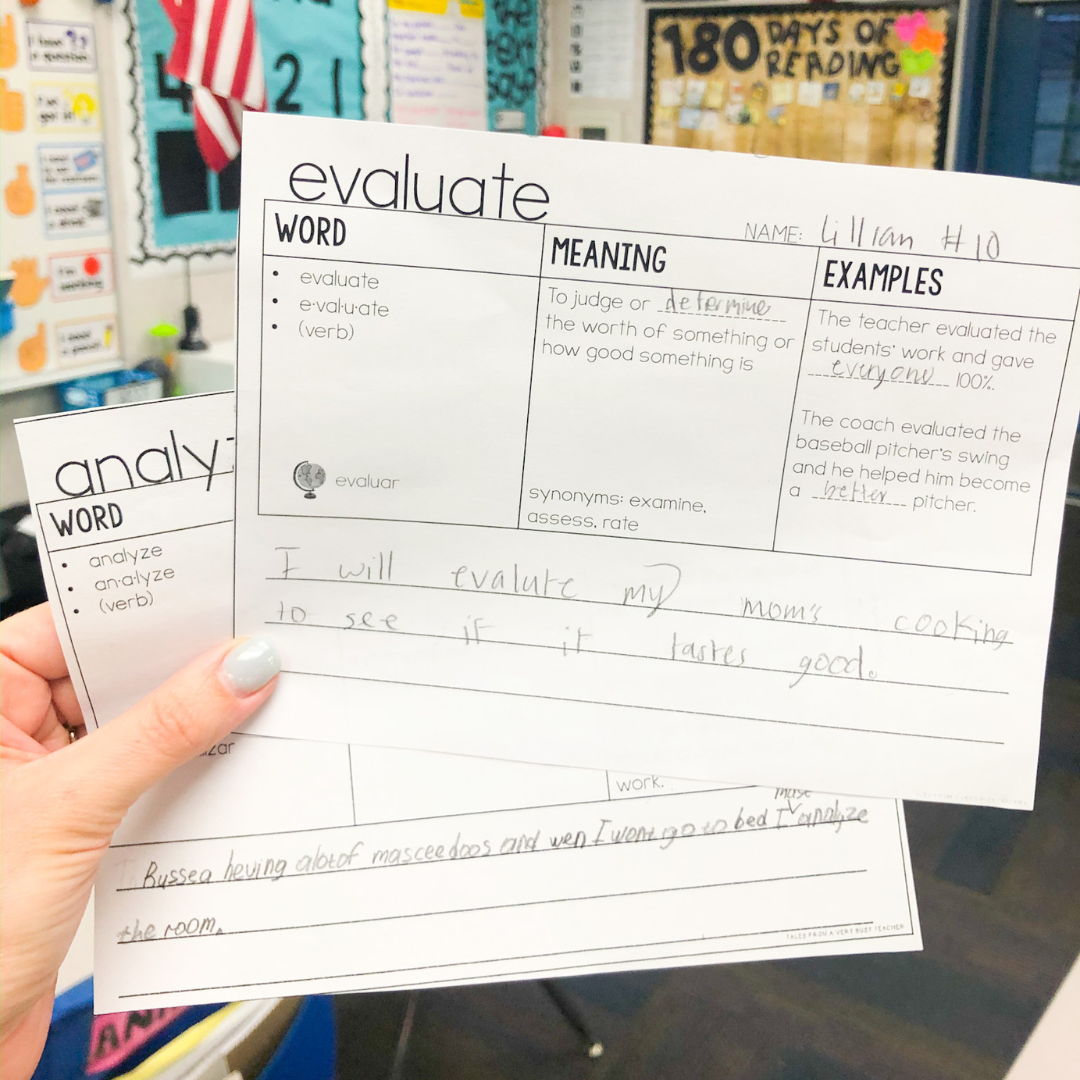 I have
a question.
4 2 1
180 DAYS OF
READING
evaluate
NAME: Lillian #10
WORD
MEANING
EXAMPLES
• evaluate
• e·val·u·ate
• (verb)
evaluar
To judge or determine
the worth of something or
how good something is
synonyms: examine,
assess, rate
The teacher evaluated the
students' work and gave
everyone 100%.
The coach evaluated the
baseball pitcher's swing
and he helped him become
a better pitcher.
I will evalute my mom's cooking
to see if it tastes good.
analyz
WORD
• analyze
• an·a·lyze
• (verb)
zar
work.
must
Bussea heving alotof masceedoos and wen I wont go to bed I analyze
the room.
TALES FROM A VERY BUSY TEACHER